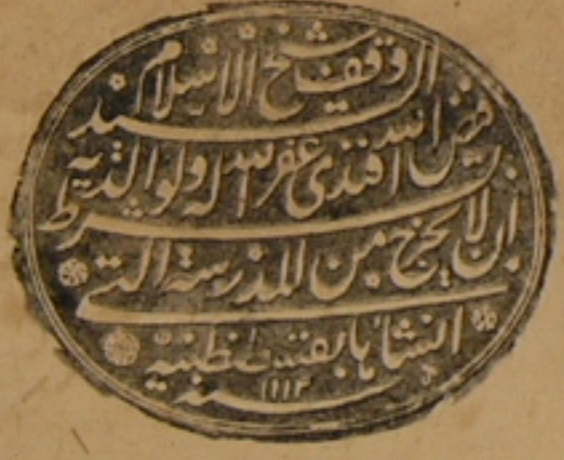 وقف شيخ الاسلام السيد
فيض الله افندى غفر الله له ولوالديه
بشرط ان لا يخرج من المدرسة التي
انشأها بقسطنطينية
سنة ١١١٣